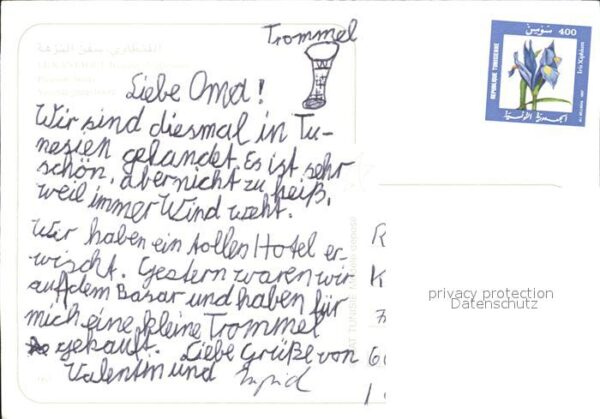 Trommel
400
REPUBLIQUE TUNISIENNE
Iris Xiphium
الجمهورية التونسية
Liebe Oma!
Wir sind diesmal in Tu-
nesien gelandet. Es ist sehr
schön, aber nicht zu heiß,
weil immer Wind weht.
Wir haben ein tolles Hotel er-
wischt. Gestern waren wir
auf dem Basar und haben für
mich eine kleine Trommel
gekauft. Liebe Grüße von
Valentin und Ingrid
R
K
privacy protection
Datenschutz